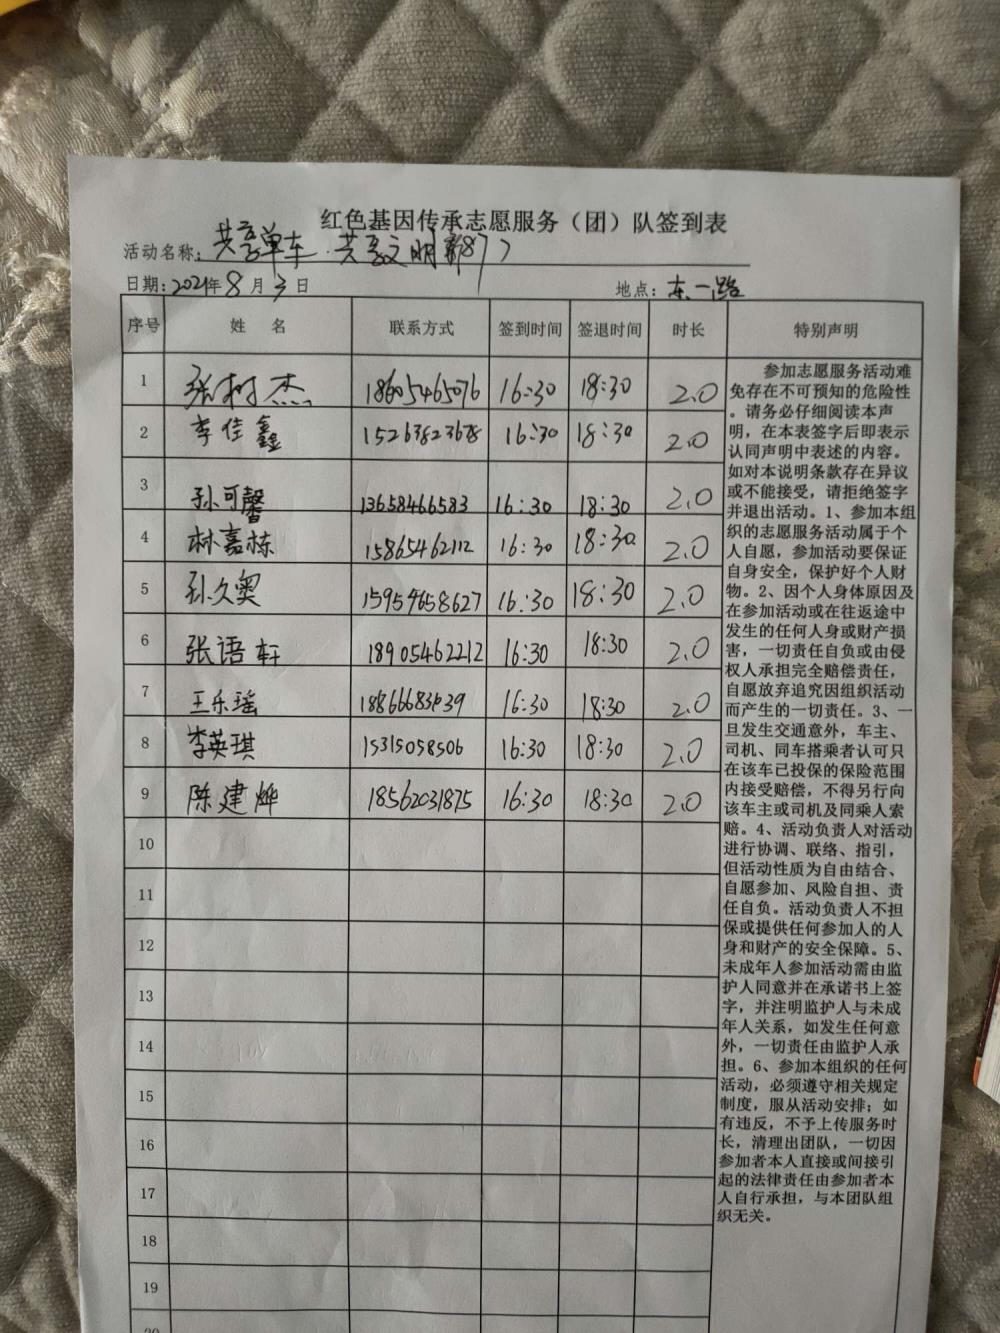 红色基因传承志愿服务（团）队签到表
活动名称：共享单车·共享文明第87次
日期：2021年8月3日 地点：东一路
序号 姓名 联系方式 签到时间 签退时间 时长 特别声明
1 张树杰 18605465076 16:30 18:30 2.0
2 李佳鑫 15263823678 16:30 18:30 2.0
3 孙可馨 13658466583 16:30 18:30 2.0
4 林嘉栋 15865462112 16:30 18:30 2.0
5 孙久奥 15954658627 16:30 18:30 2.0
6 张语轩 18905462212 16:30 18:30 2.0
7 王乐瑶 16:30 18:30 2.0
8 李英琪 15315058506 16:30 18:30 2.0
9 陈建烨 18562031875 16:30 18:30 2.0
10
11
12
13
14
15
16
17
18
19
20
参加志愿服务活动难
免存在不可预知的危险性
。请务必仔细阅读本声
明，在本表签字后即表示
认同声明中表述的内容。
如对本说明条款存在异议
或不能接受，请拒绝签字
并退出活动。1、参加本组
织的志愿服务活动属于个
人自愿，参加活动要保证
自身安全，保护好个人财
物。2、因个人身体原因及
在参加活动或在往返途中
发生的任何人身或财产损
害，一切责任自负或由侵
权人承担完全赔偿责任，
自愿放弃追究因组织活动
而产生的一切责任。3、一
旦发生交通意外，车主、
司机、同车搭乘者认可只
在该车已投保的保险范围
内接受赔偿，不得另行向
该车主或司机及同乘人索
赔。4、活动负责人对活动
进行协调、联络、指引，
但活动性质为自由结合、
自愿参加、风险自担、责
任自负。活动负责人不担
保或提供任何参加人的人
身和财产的安全保障。5、
未成年人参加活动需由监
护人同意并在承诺书上签
字，并注明监护人与未成
年人关系，如发生任何意
外，一切责任由监护人承
担。6、参加本组织的任何
活动，必须遵守相关规定
制度，服从活动安排；如
有违反，不予上传服务时
长，清理出团队，一切因
参加者本人直接或间接引
起的法律责任由参加者本
人自行承担，与本团队组
织无关。